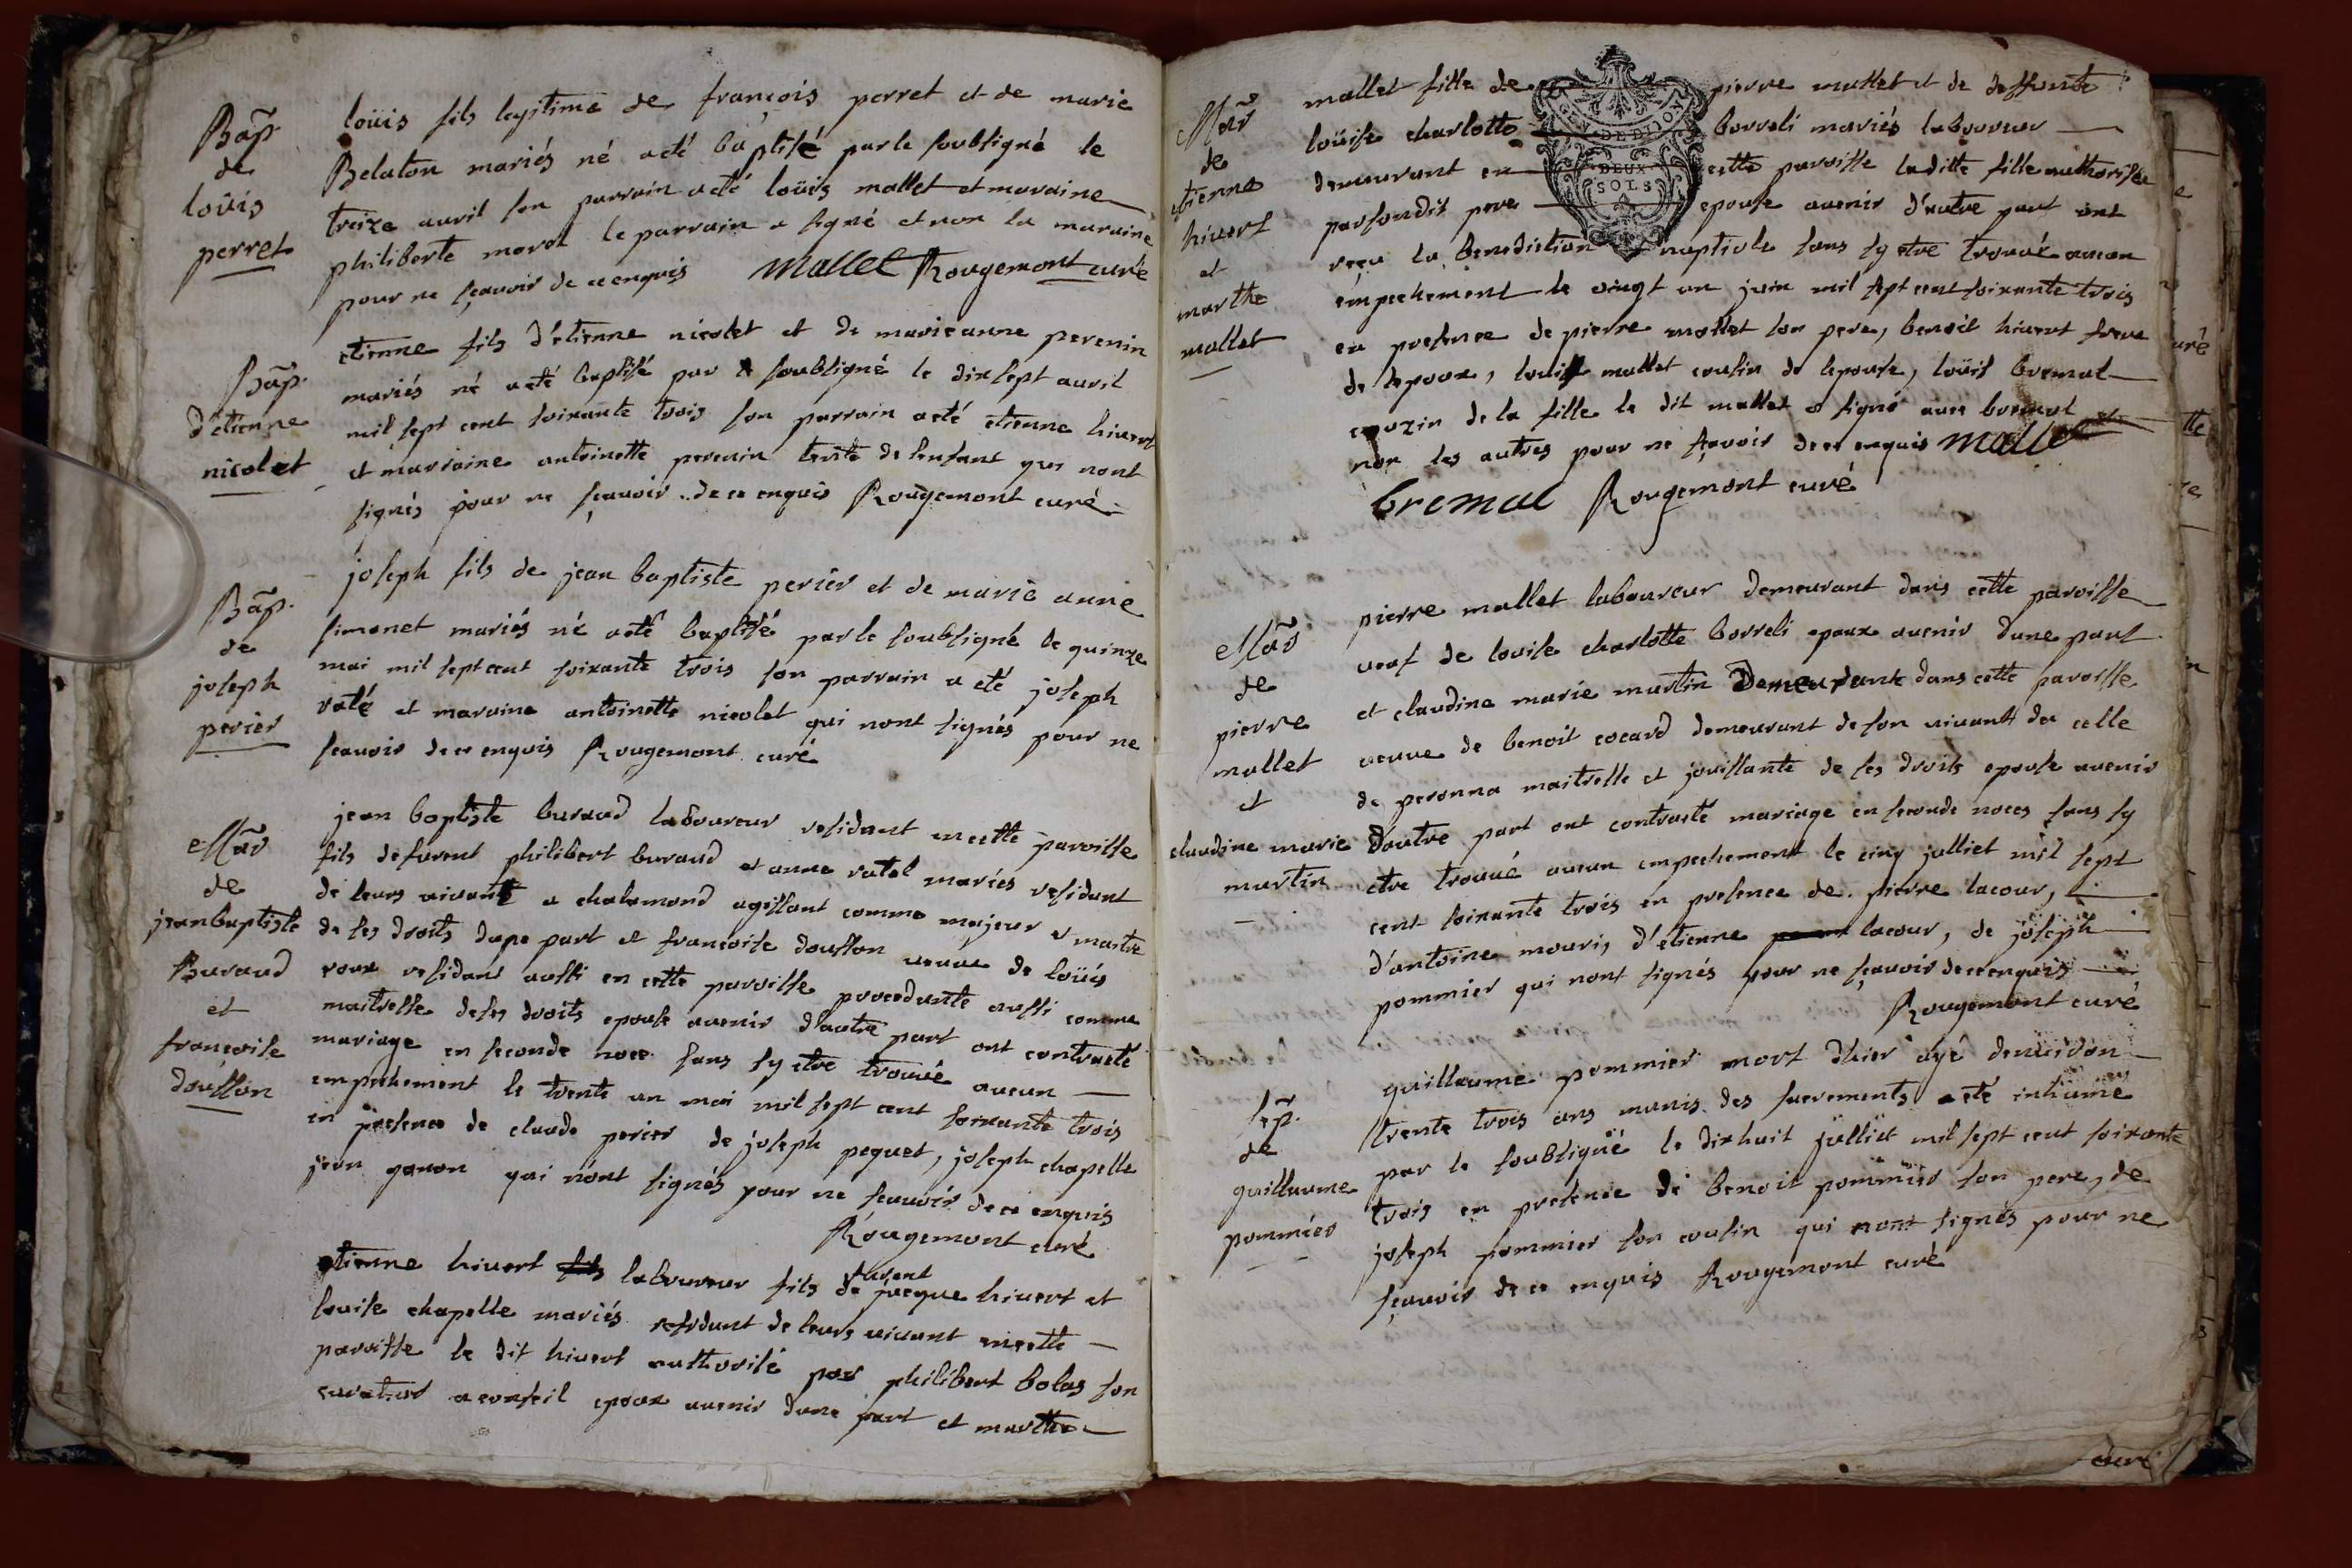 Bap̃.
de
loüis
perret
loüis fils legitime de françois perret et de marie
Belaton mariés né a eté baptisé par le soubsigné le
treize auril son parrain a eté loüis mallet et maraine
philiberte morel le parrain a signé et non la maraine
pour ne sçauoir de ce enquis mallet Rougemont curé
Bap̃.
d'etienne
nicolet
etienne fils d'etienne nicolet et de marie anne perenin
mariés né a eté baptisé par le soubsigné le dix sept auril
mil sept cent soixante trois son parrain a eté etienne hiuert
et marraine antoinette perenin tente de lenfant qui nont
signés pour ne sçauoir de ce enquis Rougemont curé
Bap̃.
de
joseph
perier
joseph fils de jean baptiste perier et de marie anne
simonet mariés né a eté baptisé par le soubsigné le quinze
mai mil sept cent soixante trois son parrain a eté joseph
raté et maraine antoinette nicolet qui nont signés pour ne
sçauoir de ce enquis Rougemont curé
Mar̃
de
jean baptiste
Buraud
et
francoise
dousson
jean baptiste buraud laboureur residant en cette paroisse
fils de furent philibert buraud et anne ratel mariés residant
de leurs uiuants a chalamond agissant comme majeur et maitre
de ses droits dune part et francoise dousson ueuue de loüis
roux residant aussi en cette paroisse procedante aussi comme
maitresse de ses droits epouse auenir d'autre part ont contracté
mariage en seconde noce sans sy etre trouué aucun
empechement le trente un mai mil sept cent soixante trois
en presence de claude perier de joseph peguet, joseph chapelle
jean ganon qui n'ont signés pour ne sçauoir de ce enquis
Rougemont curé
etienne hiuert fils laboureur fils de furent jacque hiuert et
louise chapelle mariés residant de leurs uiuant en cette
paroisse le dit hiuert authorisé par philibert bolas son
curateur a conseil epoux auenir dune part et marthe
Mar̃
de
etienne
hiuert
et
marthe
mallet
mallet fille de pierre mallet et de deffunte
loüise charlotte borreli mariés laboureur
demeurant en cette paroisse laditte fille authorisée
par sondit pere epouse auenir d'autre part ont
reçu la benediction nuptiale sans sy etre trouué aucun
empechement le uingt un juin mil sept cent soixante trois
en presence de pierre mallet son pere, benoit hiuert frere
de lepoux, louis mallet cousin de lepouse, loüis bremal
couzin de la fille le dit mallet a signé auec bremal et
non les autres pour ne sçauoir de ce enquis mallet
bremal Rougemont curé
GEN. DE DIJON
DEUX
SOLS
Mar̃
de
pierre
mallet
et
claudine marie
martin
pierre mallet laboureur demeurant dans cette paroisse
ueuf de louise charlotte borreli epoux auenir dune part
et claudine marie martin Demeurante dans cette paroisse
ueuue de benoit cocard demeurant de son uiuant de celle
de peronna maitresse et jouissante de ses droits epouse auenir
d'autre part ont contracté mariage en seconde noces sans sy
etre trouué aucun empechement le cinq julliet mil sept
cent soixante trois en presence de pierre lacour,
d'antoine mouri, d'etienne lacour, de joseph
pommier qui nont signés pour ne sçauoir de ce enquis
Rougemont curé
sep̃.
de
guillaume
pommier
guillaume pommier mort d'hier agé denuiron
trente trois ans munis des sacrements a eté inhumé
par le soubsigné le dix huit julliet mil sept cent soixante
trois en presence de benoit pommier son pere, de
joseph pommier son cousin qui nont signés pour ne
sçauoir de ce enquis Rougemont curé
curé